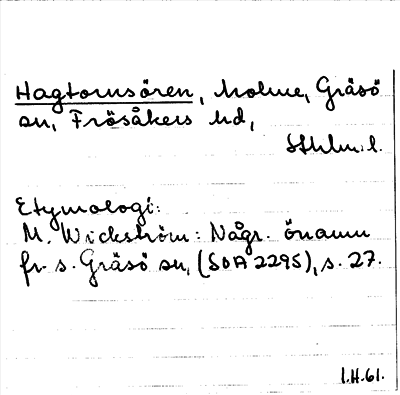 Hagtornsören, holme, Gräsö
sn, Frösåkers hd,
Sthlm.l.
Etymologi:
M. Wickström: Någr. önamn
fr. s. Gräsö sn, (SOA 2295), s. 27.
I.H.61.